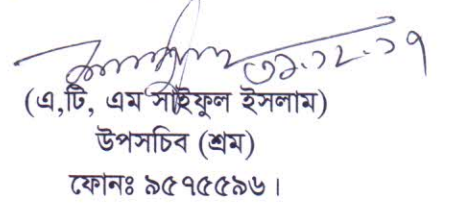 ৩১.১২.১৭
(এ,টি, এম সাইফুল ইসলাম)
উপসচিব (শ্রম)
ফোনঃ ৯৫৭৫৫৯৬।